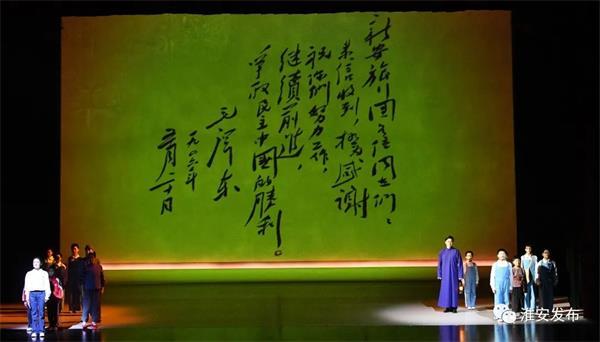 新安旅行团各位同志们：
来信收到，极为感谢
祝你们努力工作，
继续前进，
争取民主中国的胜利。
毛泽东
一九四六年
五月二十日
淮安发布